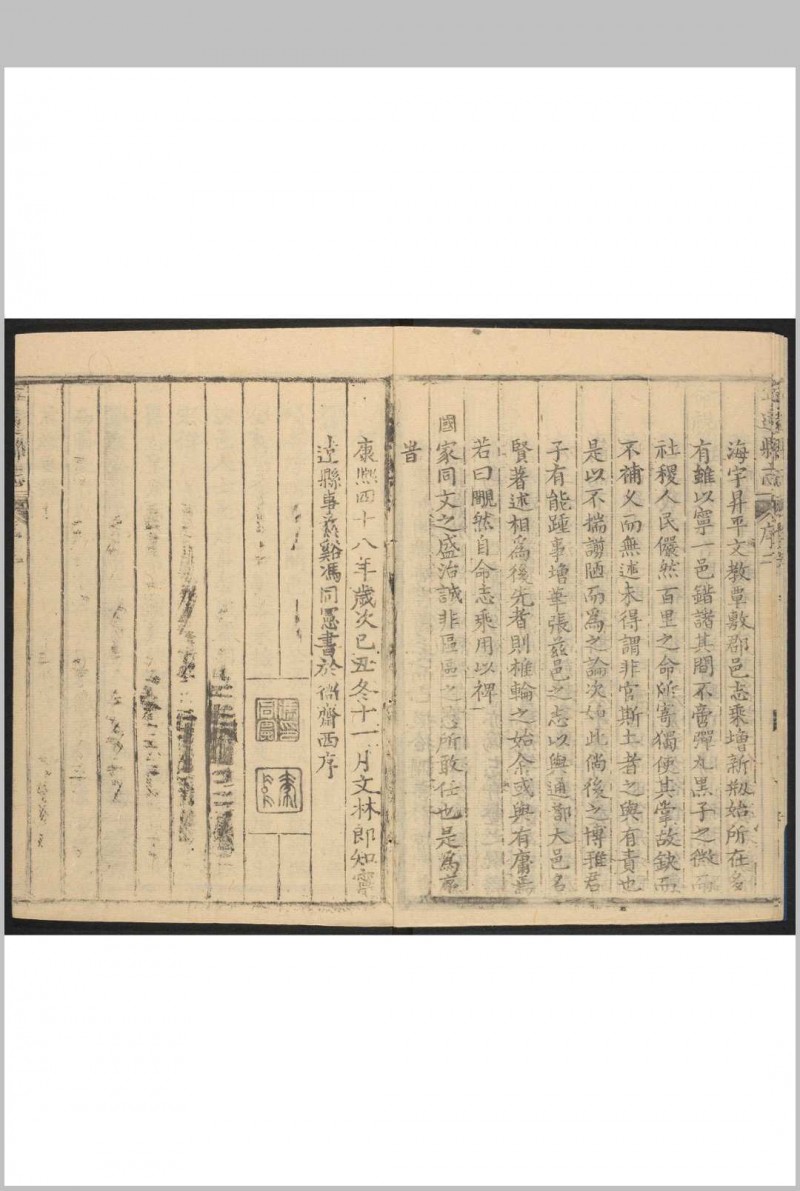 海宇昇平文教覃敷郡邑志乘增新剏始所在多
有雖以寧一邑錯諸其間不啻彈丸黑子之微而
社稷人民儼然百里之命所寄獨使其掌故缺而
不補義而無述未得謂非官斯土者之與有責也
是以不揣謭陋而爲之論次如此倘後之博雅君
子有能踵事增華張茲邑之志以與通都大邑名
賢著述相爲後先者則椎輪之始余或與有庸焉
若曰覥然自命志乘用以裨
國家同文之盛治誠非區區之 所敢任也是爲序
旹
康熙四十八年歲次己丑冬十一月文林郎知寧
遠縣事慈谿馮同憲書於 齋西序
遠縣志
序
縣志